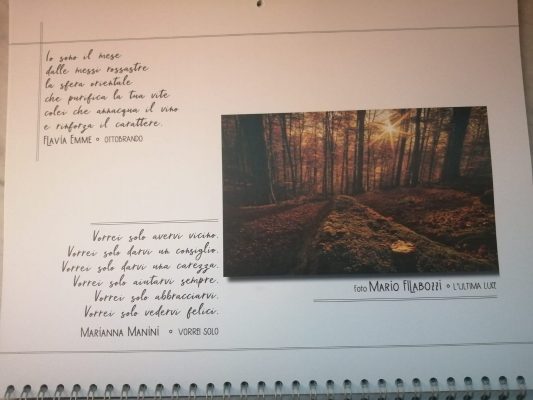 Io sono il mese
dalle messi rossastre
la sfera orientale
che purifica la tua vite
colei che annacqua il vino
e rinforza il carattere.
FLAVIA EMME • OTTOBRANDO
Vorrei solo avervi vicino.
Vorrei solo darvi un consiglio.
Vorrei solo darvi una carezza.
Vorrei solo aiutarvi sempre.
Vorrei solo abbracciarvi.
Vorrei solo vedervi felici.
MARIANNA MANINI • VORREI SOLO
FOTO MARIO FILABOZZI • L'ULTIMA LUCE